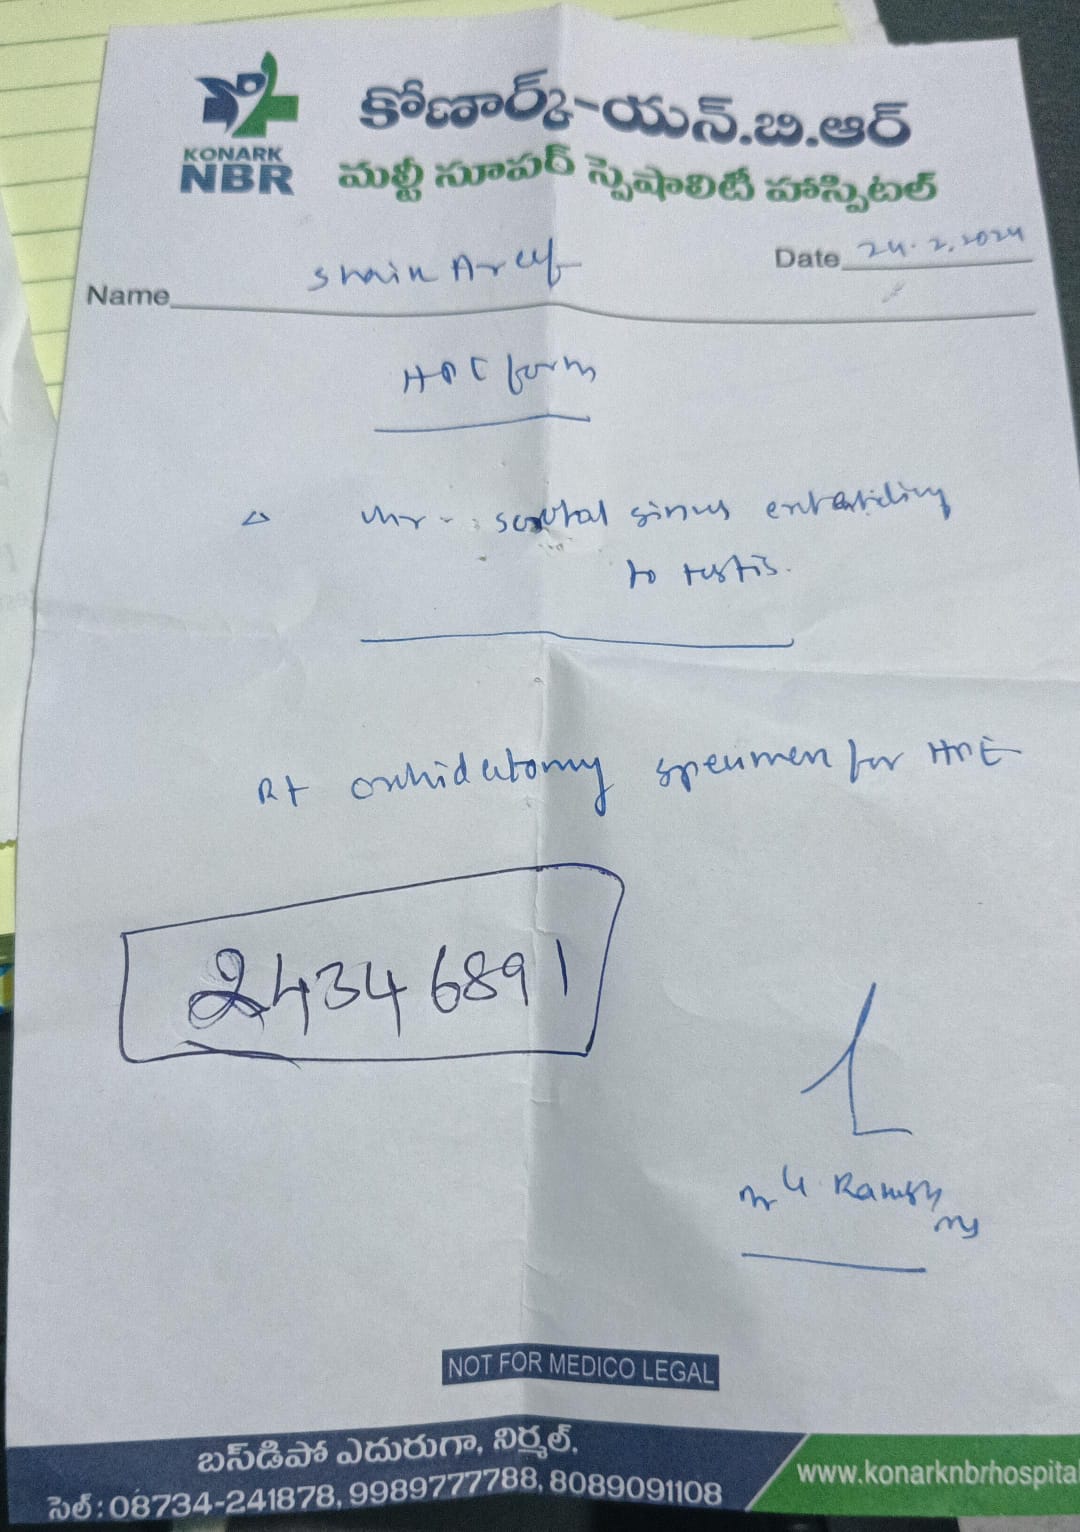 కోణార్క్-యన్.బి.ఆర్
KONARK
NBR
మల్టీ సూపర్ స్పెషాలిటీ హాస్పిటల్
Date 24.2.2024
Name Shaik Areef
HPE form
Δ scrotal sinus extending
to testis.
Rt orchidectomy specimen for HPE
24346891
NOT FOR MEDICO LEGAL
బస్‌డిపో ఎదురుగా, నిర్మల్.
సెల్ : 08734-241878, 9989777788, 8089091108
www.konarknbrhospital